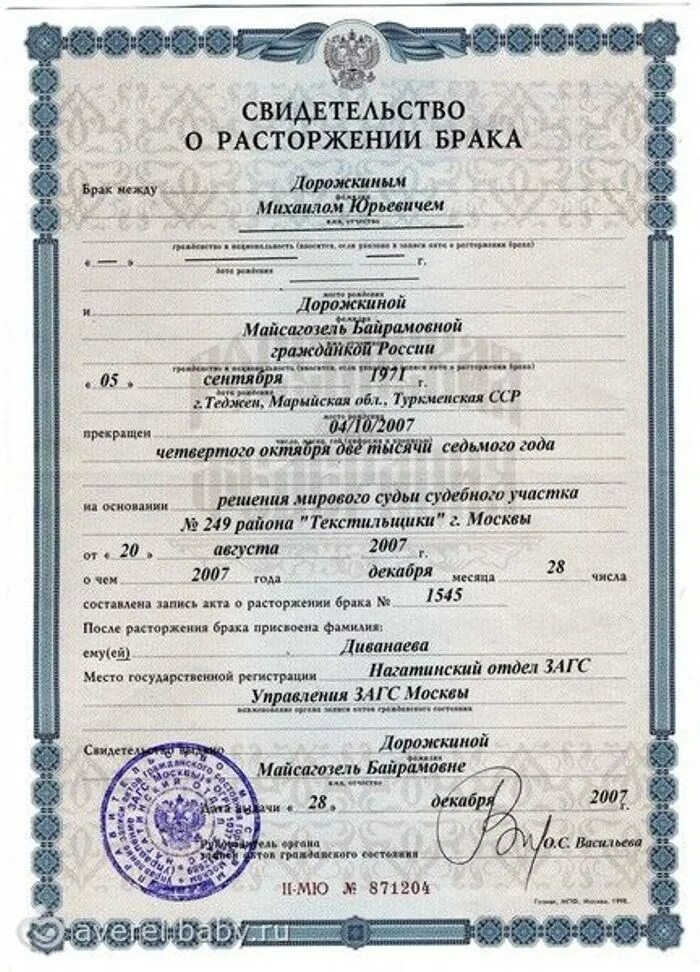 СВИДЕТЕЛЬСТВО
О РАСТОРЖЕНИИ БРАКА
Брак между Дорожкиным
фамилия
Михаилом Юрьевичем
имя, отчество
гражданство и национальность (вносится, если указано в записи акта о расторжении брака)
« — » — г.
дата рождения
место рождения
и Дорожкиной
фамилия
Майсагозель Байрамовной
имя, отчество
гражданкой России
гражданство и национальность (вносится, если указано в записи акта о расторжении брака)
« 05 » сентября 1971 г.
дата рождения
г.Теджен, Марыйская обл., Туркменская ССР
место рождения
прекращен 04/10/2007
число, месяц, год (цифрами и прописью)
четвертого октября две тысячи седьмого года
на основании решения мирового судьи судебного участка
№ 249 района "Текстильщики" г. Москвы
от « 20 » августа 2007 г.
о чем 2007 года декабря месяца 28 числа
составлена запись акта о расторжении брака № 1545
После расторжения брака присвоена фамилия:
ему(ей) Диванаева
Место государственной регистрации Нагатинский отдел ЗАГС
Управления ЗАГС Москвы
наименование органа записи актов гражданского состояния
Свидетельство выдано Дорожкиной
фамилия
Майсагозель Байрамовне
имя, отчество
Дата выдачи « 28 » декабря 2007 г.
Руководитель органа
записи актов гражданского состояния О.С. Васильева
II-МЮ № 871204
Гознак, МПФ, Москва, 1998.
averel-baby.ru